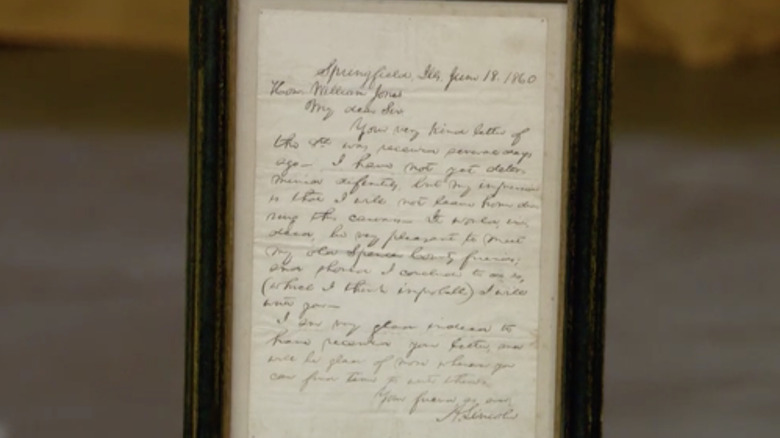 Springfield, Ills, June 18. 1860
Hon. William Jones
My dear Sir
Your very kind letter of
the was received several days
ago — I have not yet deter-
mined definitely, but my impression
is that I will not leave home du-
ring this canvass — It would, in-
deed, be very pleasant to meet
my old Spencer County friends;
and should I conclude to do so,
(which I think improbable) I will
write you —
I am very glad indeed to
have received your letter, and
will be glad of more whenever you
can find time to write them
Your friend as ever
A. Lincoln